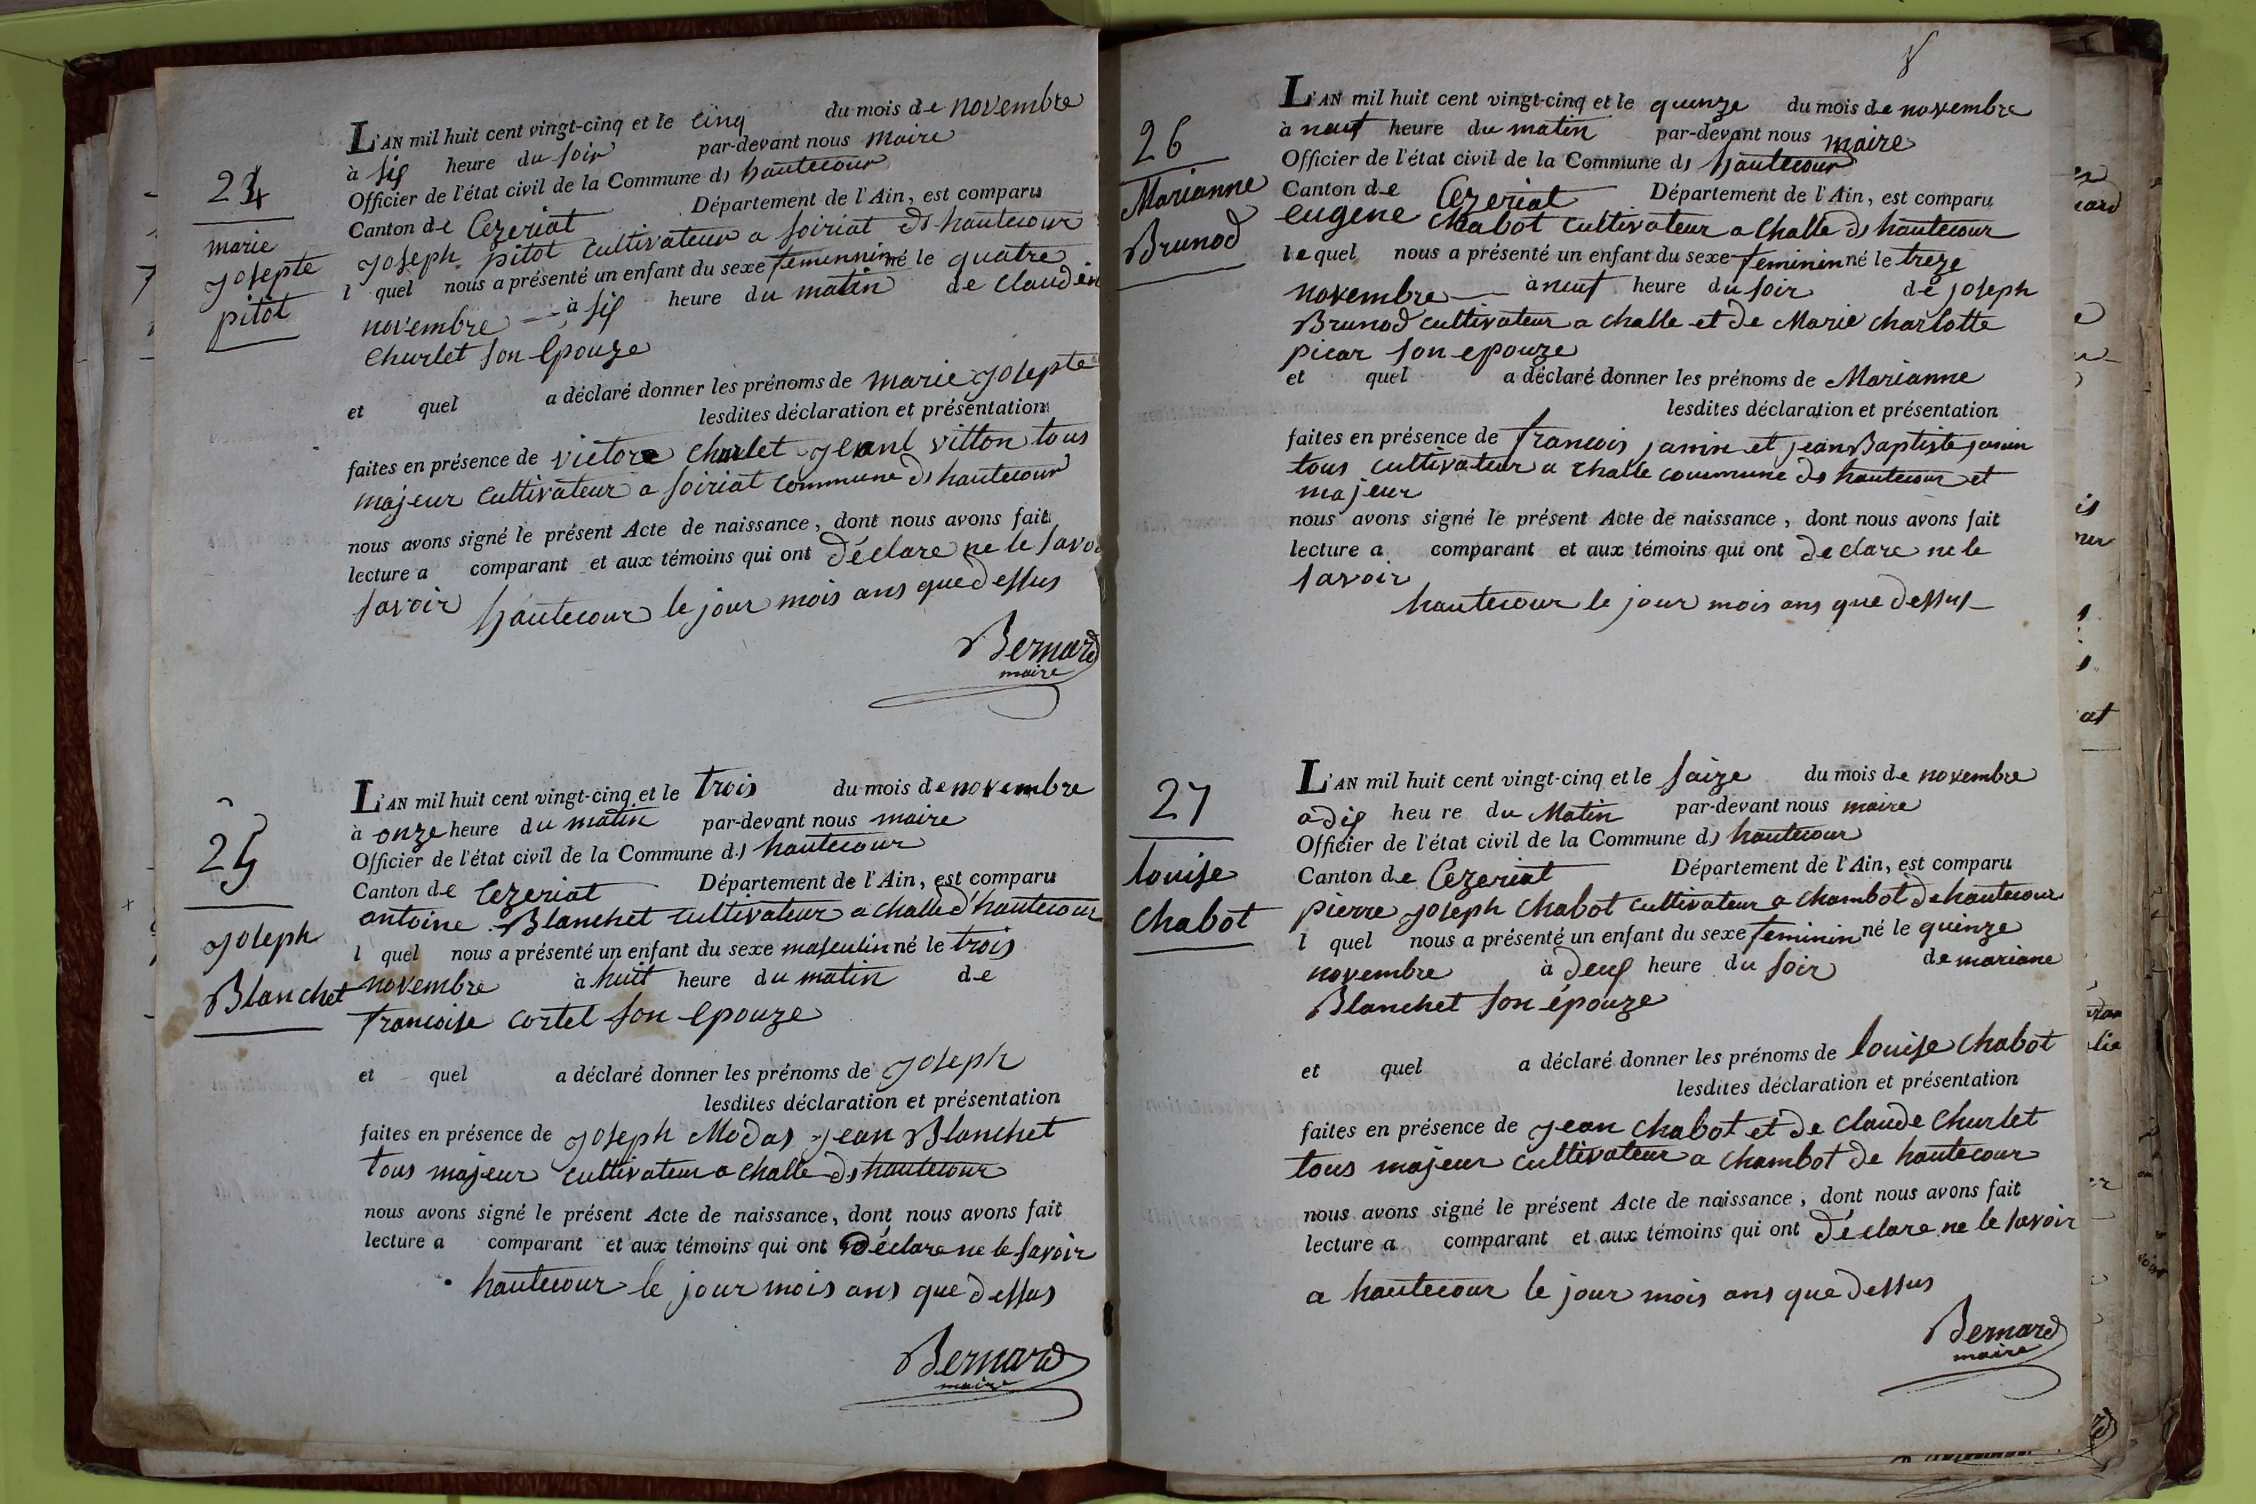 24
marie
josepte
pitot
L'AN mil huit cent vingt-cinq et le cinq du mois de novembre
à sis heure du soir par-devant nous maire
Officier de l'état civil de la Commune ds hautecour
Canton de Cezeriat Département de l'Ain, est comparu
joseph pitot cultivateur a soiriat ds hautecour
l quel nous a présenté un enfant du sexe femennin né le quatre
novembre — à sis heure du matin de claudin
Churlet son epouze
et quel a déclaré donner les prénoms de marie josepte
lesdites déclaration et présentation
faites en présence de victore churlet jean vitton tous
majeur cultivateur a soiriat commune ds hautecour
nous avons signé le présent Acte de naissance, dont nous avons fait
lecture a comparant et aux témoins qui ont déclare ne le savoi
savoir hautecour le jour mois ans que dessus
Bernard
maire
25
joseph
Blanchet
L'AN mil huit cent vingt-cinq et le trois du mois de novembre
à onze heure du matin par-devant nous maire
Officier de l'état civil de la Commune ds hautecour
Canton de Cezeriat Département de l'Ain, est comparu
antoine Blanchet cultivateur a challe d'hautecour
l quel nous a présenté un enfant du sexe masculin né le trois
novembre à huit heure du matin de
francoise cortel son epouze
et quel a déclaré donner les prénoms de joseph
lesdites déclaration et présentation
faites en présence de joseph Modas jean Blanchet
tous majeur cultivateur a challe ds hautecour
nous avons signé le présent Acte de naissance, dont nous avons fait
lecture a comparant et aux témoins qui ont déclare ne le savoir
hautecour le jour mois ans que dessus
Bernard
maire
8
26
Marianne
Brunod
L'AN mil huit cent vingt-cinq et le quinze du mois de novembre
à neuf heure du matin par-devant nous maire
Officier de l'état civil de la Commune ds hautecour
Canton de Cezeriat Département de l'Ain, est comparu
eugene Chabot cultivateur a challe ds hautecour
le quel nous a présenté un enfant du sexe feminin né le treze
novembre — à neuf heure du soir de joseph
Brunod cultivateur a challe et de Marie charlotte
picar son epouze
et quel a déclaré donner les prénoms de Marianne
lesdites déclaration et présentation
faites en présence de francois janin et jean Baptiste janin
tous cultivateur a challe commune ds hautecour et
majeur
nous avons signé le présent Acte de naissance, dont nous avons fait
lecture a comparant et aux témoins qui ont declare ne le
savoir
hautecour le jour mois ans que dessus
27
louise
chabot
L'AN mil huit cent vingt-cinq et le saize du mois de novembre
a dis heu re du Matin par-devant nous maire
Officier de l'état civil de la Commune ds hautecour
Canton de Cezeriat Département de l'Ain, est comparu
pierre joseph chabot cultivateur a chambot de hautecour
l quel nous a présenté un enfant du sexe feminin né le quinze
novembre à deus heure du soir de mariane
Blanchet son épouze
et quel a déclaré donner les prénoms de louise chabot
lesdites déclaration et présentation
faites en présence de jean chabot et de claude churlet
tous majeur cultivateur a chambot de hautecour
nous avons signé le présent Acte de naissance, dont nous avons fait
lecture a comparant et aux témoins qui ont déclare ne le savoir
a hautecour le jour mois ans que dessus
Bernard
maire